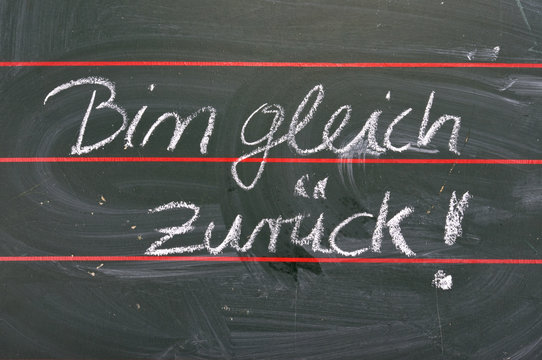 Bin gleich
zurück!